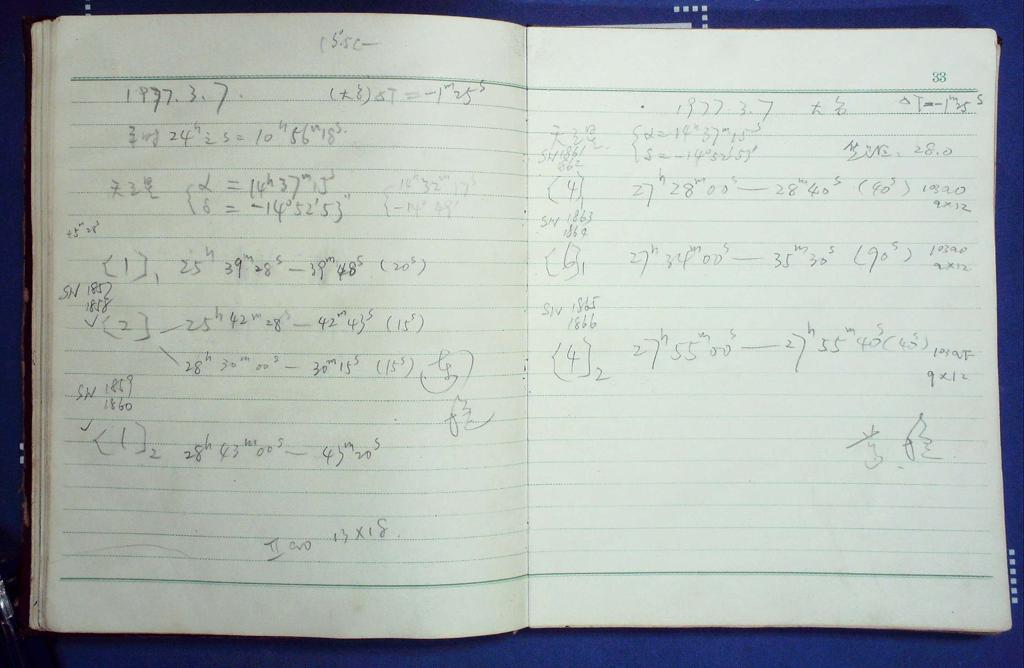 1977.3.7. (大名)ΔT=-1ᵐ25ˢ
零时 24ʰ之S=10ʰ56ᵐ18ˢ.
天王星 { α = 14ʰ37ᵐ15ˢ { 14ʰ32ᵐ17ˢ
δ = -14°52′53″ -14°49′
{1]₁ 25ʰ39ᵐ28ˢ—39ᵐ48ˢ (20ˢ)
SN 1857
1858
✓{2] 25ʰ42ᵐ28ˢ—42ᵐ43ˢ (15ˢ)
28ʰ30ᵐ00ˢ—30ᵐ15ˢ (15ˢ)
SN 1859
1860
✓{1]₂ 28ʰ43ᵐ00ˢ—43ᵐ20ˢ
IIao 13×18.
33
1977.3.7 大名 ΔT=-1ᵐ25ˢ
天王星 { α=14ʰ37ᵐ15ˢ
δ=-14°52′53″ 28.0
SN 1861
862
{4]₁ 27ʰ28ᵐ00ˢ—28ᵐ40ˢ (40ˢ) 103aO
9×12
SN 1863
1864
{6]₁ 27ʰ34ᵐ00ˢ—35ᵐ30ˢ (90ˢ) 103aO
9×12
SN 1865
1866
{4]₂ 27ʰ55ᵐ00ˢ—27ʰ55ᵐ40ˢ(40ˢ) 103aF
9×12